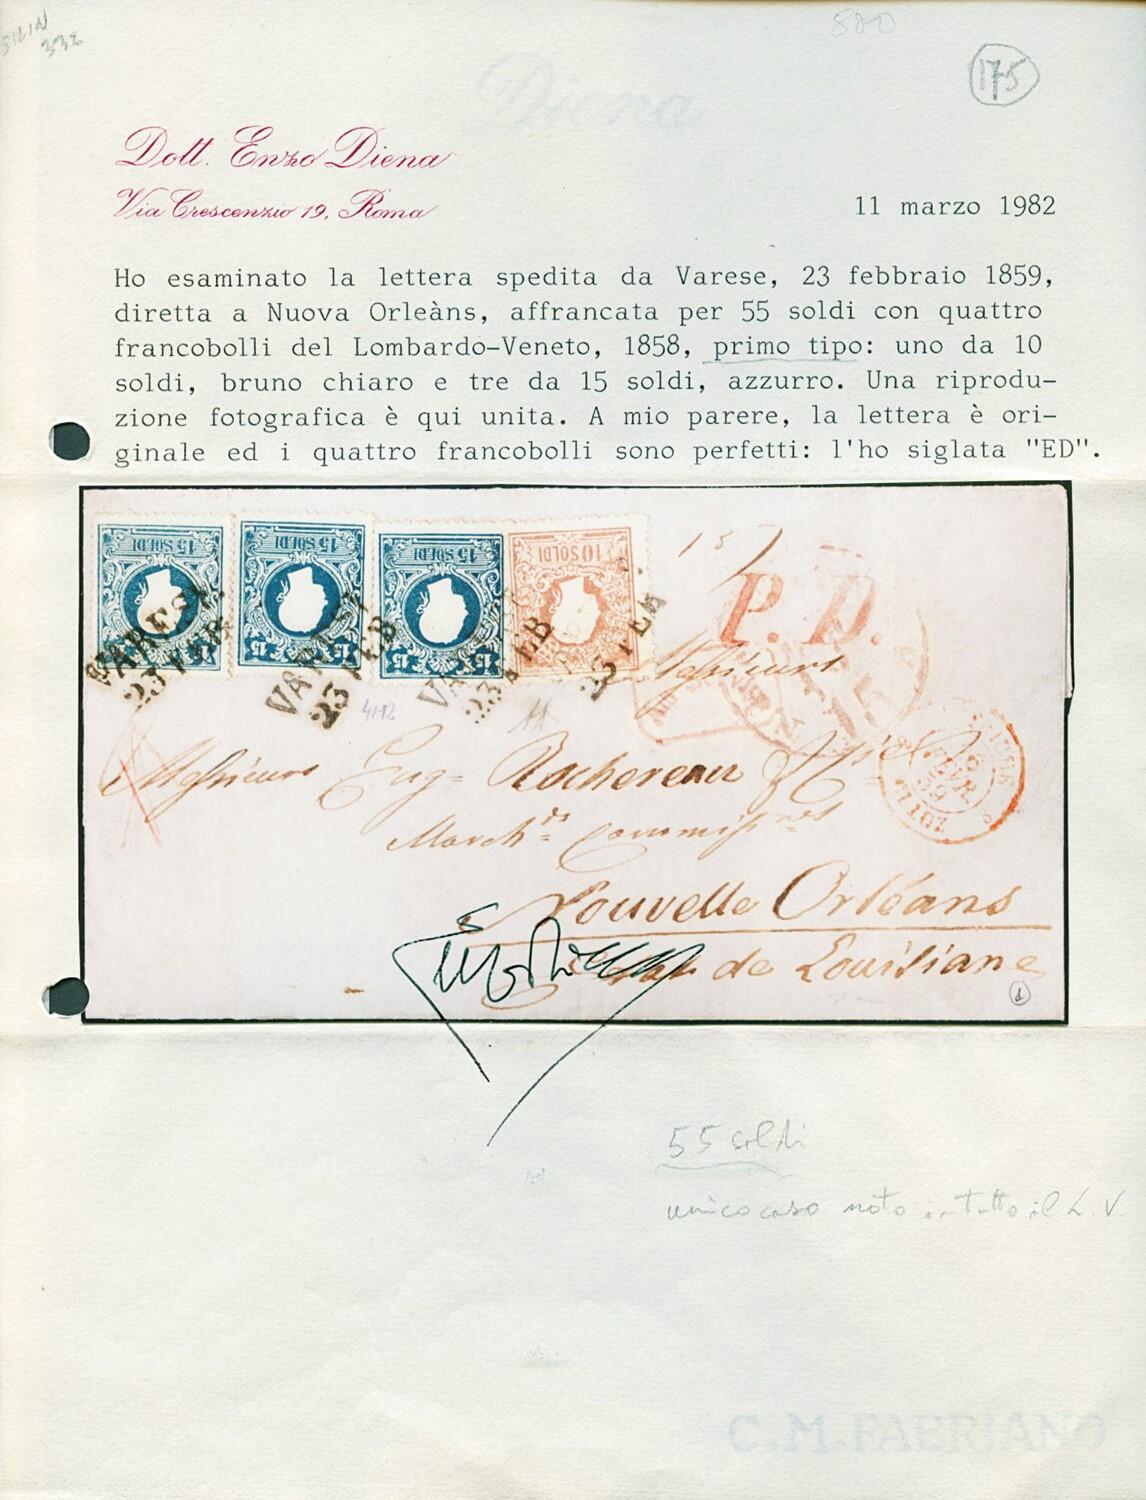 880
175
Dott. Enzo Diena
Via Crescenzio 19, Roma
11 marzo 1982
Ho esaminato la lettera spedita da Varese, 23 febbraio 1859,
diretta a Nuova Orleàns, affrancata per 55 soldi con quattro
francobolli del Lombardo-Veneto, 1858, primo tipo: uno da 10
soldi, bruno chiaro e tre da 15 soldi, azzurro. Una riprodu-
zione fotografica è qui unita. A mio parere, la lettera è ori-
ginale ed i quattro francobolli sono perfetti: l'ho siglata "ED".
15 SOLDI
15 SOLDI
15 SOLDI
10 SOLDI
VARESE
23 FEB
P. D.
Messieurs
Messieurs Eug=
March ds
Nouvelle Orléans
de Louisiane
55 soldi
unico caso noto in tutto il L. V.
C.M.FABRIANO